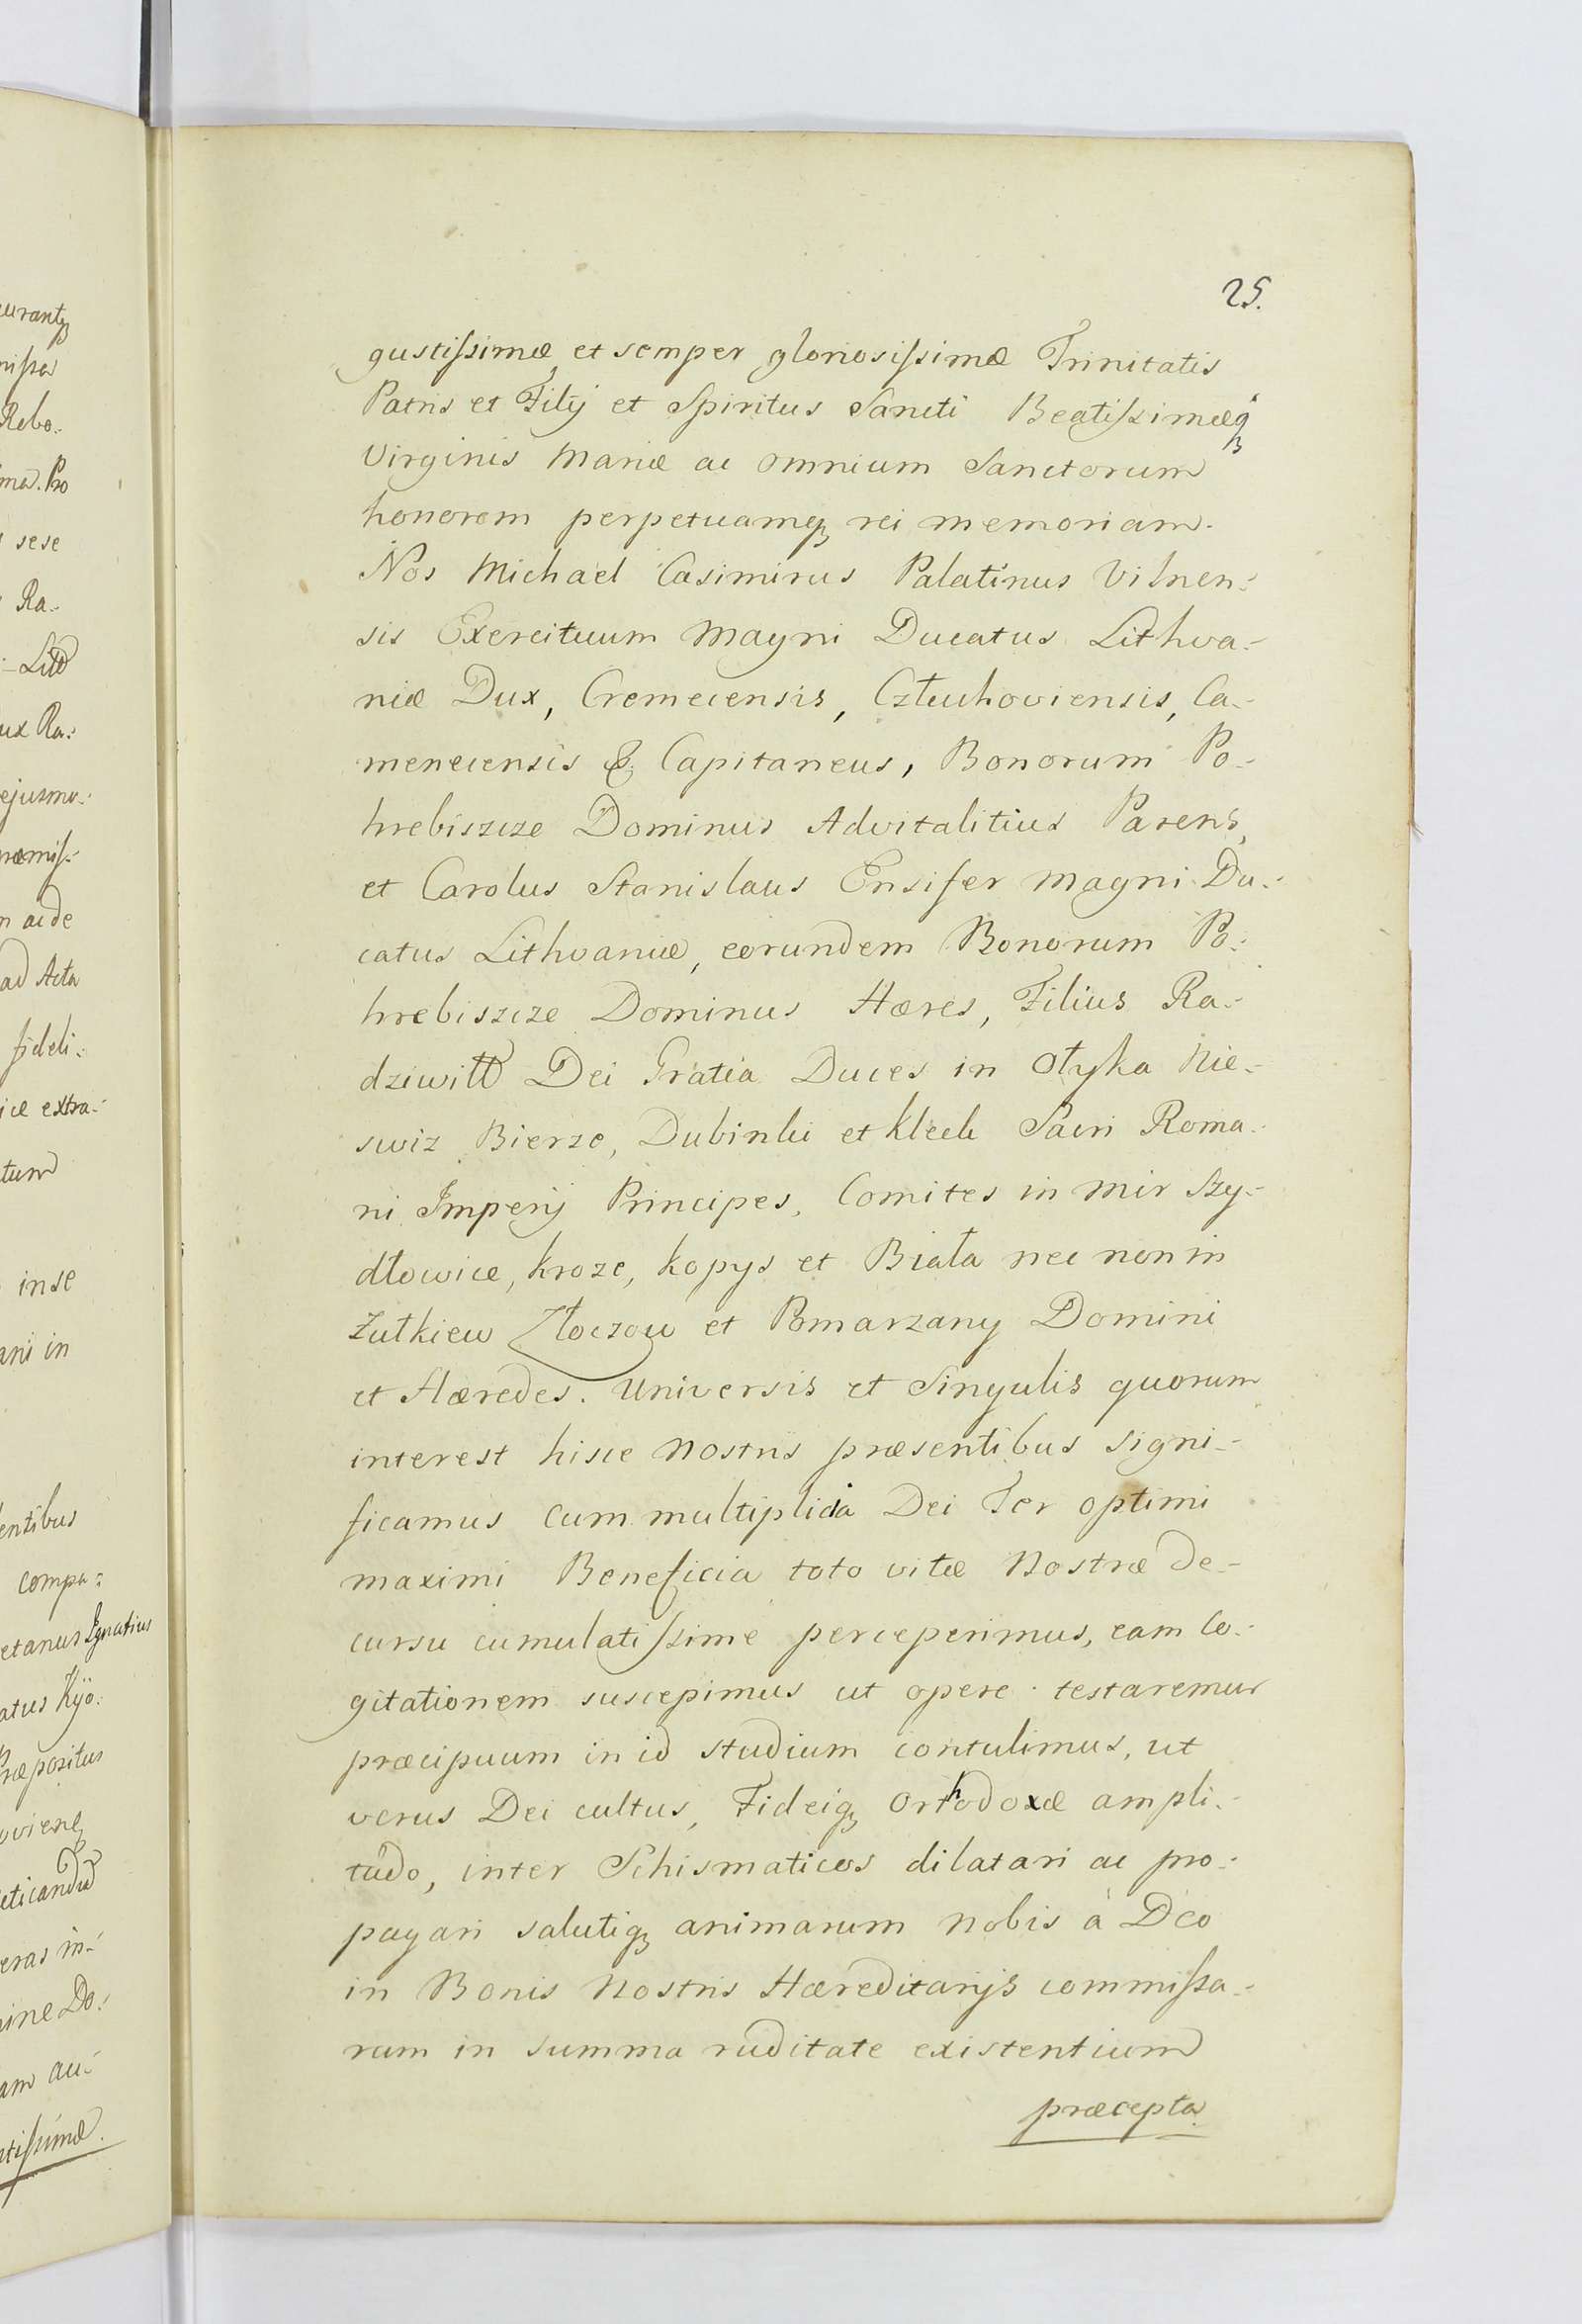 urantq
Rebo.
ma. Pro
sese
Ra.
Litt
ux Ra.
ejusmo.
ræmiſ.
ac de
ad Acta
fideli.
extra.
tum
in se
ani in
entibus
compa.
etanus Ignatius
atus Kijo.
Præpositus
oviens
eticandu
eras in.
ine Do.
am au.
tiſsimæ.
25.
gustiſsimæ et semper gloriosiſsimæ Trinitatis
Patris et Filij et Spiritus Sancti Beatiſsimæq
Virginis Mariæ ac omnium Sanctorum
honorem perpetuamq rei memoriam.
Nos Michael Casimirus Palatinus Vilnen.
sis Exercituum Magni Ducatus Lithva.
niæ Dux, Cremecensis, Człuchoviensis, Ca.
menecensis & Capitaneus, Bonorum Po.
hrebiszcze Dominus Advitalitius Parens,
et Carolus Stanislaus Ensifer Magni Du.
catus Lithvaniæ, eorundem Bonorum Po.
hrebiszcze Dominus Hæres, Filius Ra.
dziwiłł Dei Gratia Duces in Ołyka Nie.
swiz Bierze, Dubinki et Kleck Sacri Roma.
ni Imperij Principes, Comites in Mir Szy.
dłowice, Kroze, Kopys et Biała nec non in
Zułkiew Złoczow et Pomarzany Domini
et Hæredes. Universis et Singulis quorum
interest hisce Nostris præsentibus signi.
ficamus cum multiplicia Dei Ter optimi
maximi Beneficia toto vitæ Nostræ de.
cursu cumulatiſsime perceperimus, eam Co.
gitationem suscepimus ut opere testaremur
præcipuum in id studium contulimus, ut
verus Dei cultus, Fideiq Orthodoxæ ampli.
tudo, inter Schismaticos dilatari ac pro.
pagari salutiq animarum nobis à Deo
in Bonis Nostris Hæreditarijs commiſsa.
rum in summa ruditate existentium
præcepta